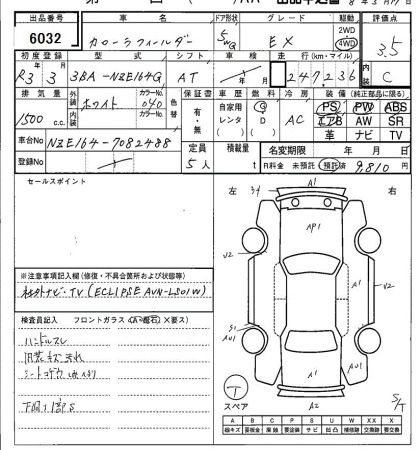 出品番号 車名 ドア形状 グレード 駆動 評価点
6032 カローラフィルダー 5 W/G EX 2WD 4WD 3.5
初度登録 型式 シフト 車検 走行(km・マイル) 内装
R3 3 3BA-NZE164G AT 247236 C
排気量 外装 カラーNo. 色替 保証書 車歴 燃料 冷房 装備(純正部品に限る)
1500 c.c. ホワイト 040 有・無 自家用 レンタ G D AC PS PW ABS
エアB AW SR
内装 カラーNo. 革 ナビ TV
車台No NZE164-7082488 定員 積載量 名変期限 年 月 日
登録No 5人 t R料金 未預託 預託済 9,810 円
セールスポイント
左 右
A1
AP1
U2
U2
A1
S1
AU1
A1
AU1
A2
S/T
T
スペア
※注意事項記入欄(修復・不具合箇所および状態等)
社外ナビ・TV(ECLIPSE AVN-LS01W)
検査員記入 フロントガラス(A=飛石 X要ス)
ハンドルスレ
内装キズ汚れ
下廻り1部S
A B C P S U W XX X
線キズ 要板金 腐蝕 要塗装 サビ 凹凸 補修跡 交換跡 要交換